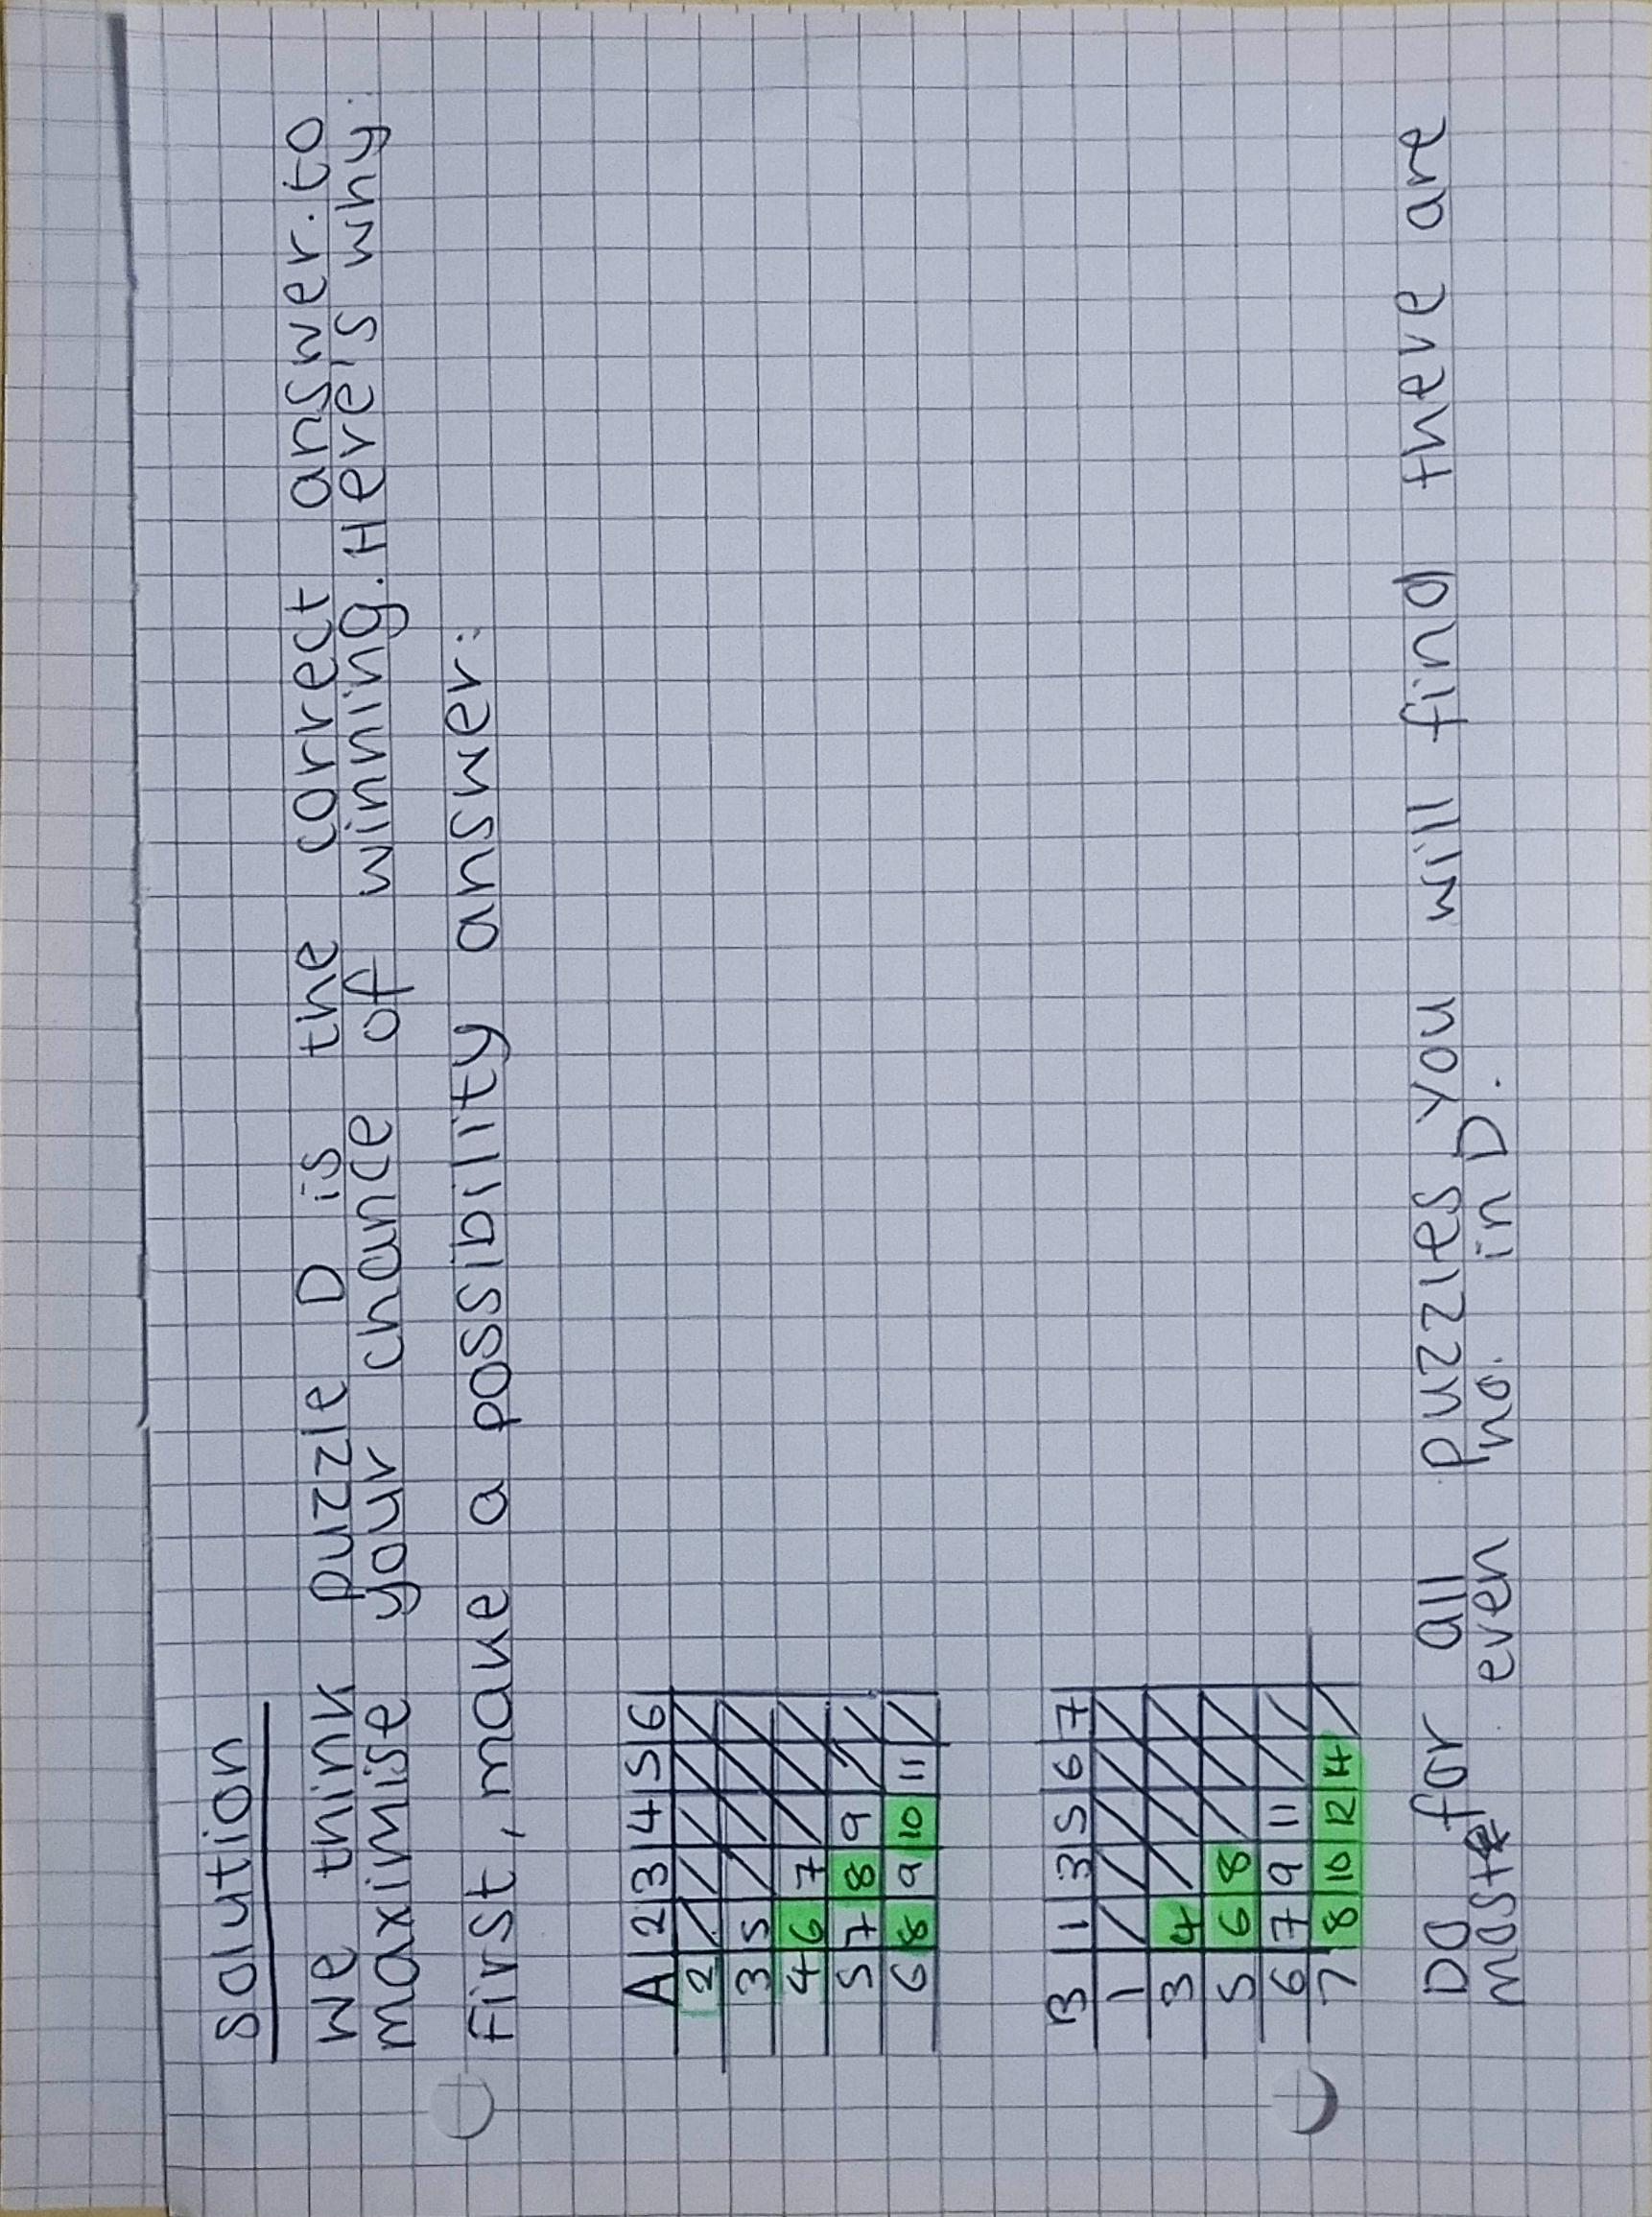 Solution
We think puzzle D is the correct answer.to
maximise your chance of winning.Here is why:
First, make a possibility answer:
A 2 3 4 5 6
2 / / / / /
3 5 / / / /
4 6 7 / / /
5 7 8 9 / /
6 8 9 10 11 /
B 1 3 5 6 7
1 / / / / /
3 4 / / / /
5 6 8 / / /
6 7 9 11 / /
7 8 10 12 14 /
Do for all puzzles you will find there are
most even no. in D.